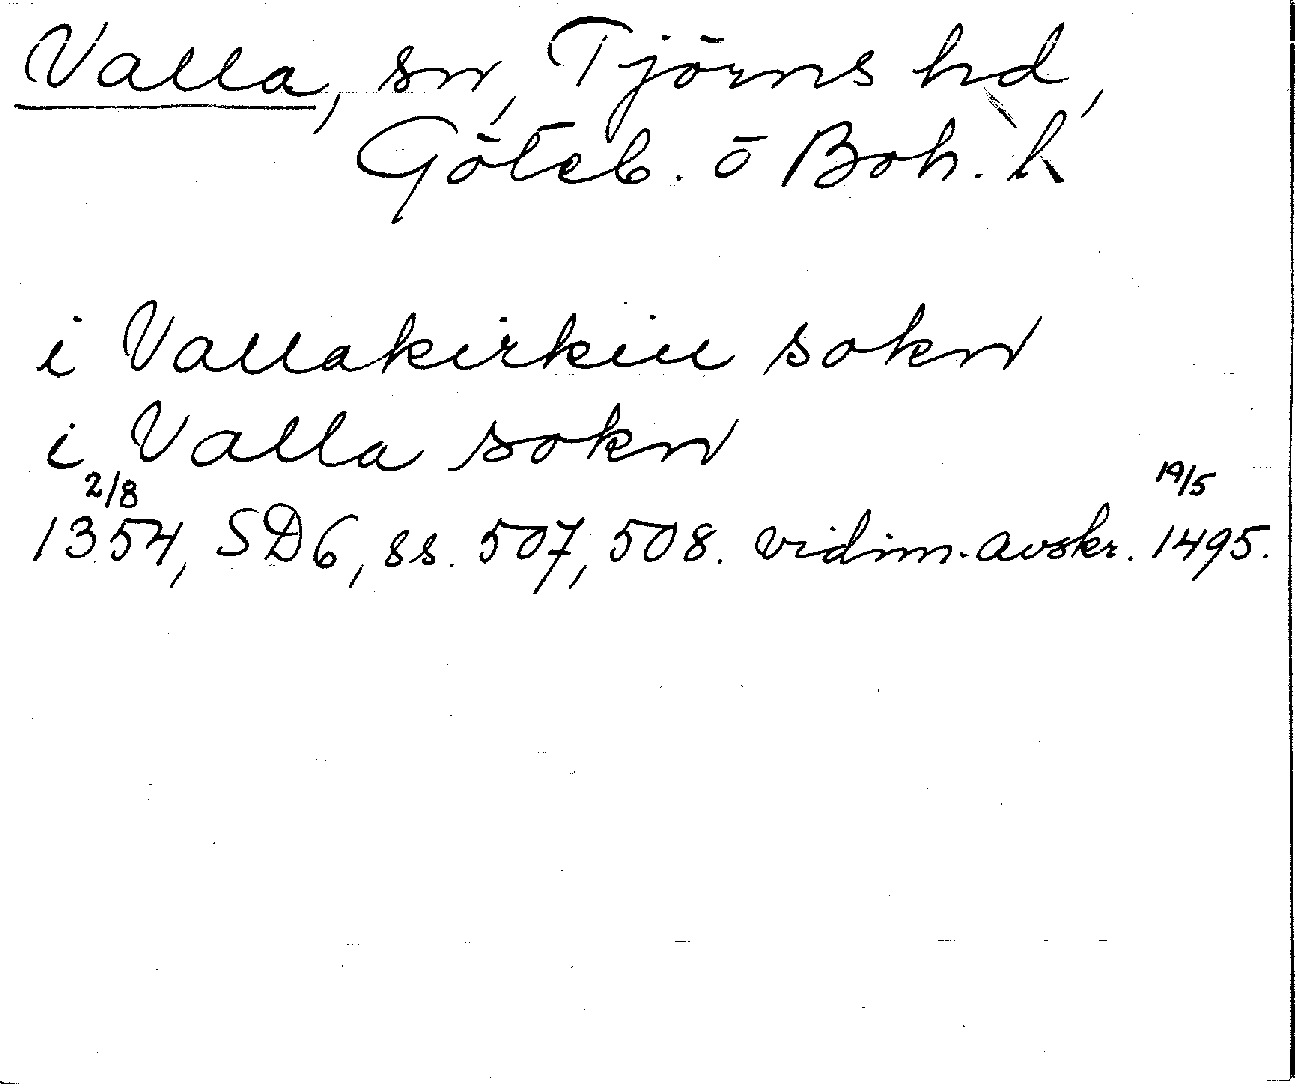 Valla, sn, Tjörns hd,
Göteb. o Boh. l
i Vallakirkiu sokn
i Valla sokn
2/8 19/5
1354, SD6, ss. 507, 508. vidim. avskr. 1495.